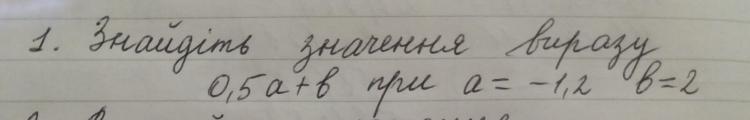 1. Знайдіть значення виразу
0,5a+b при a= -1,2 b=2